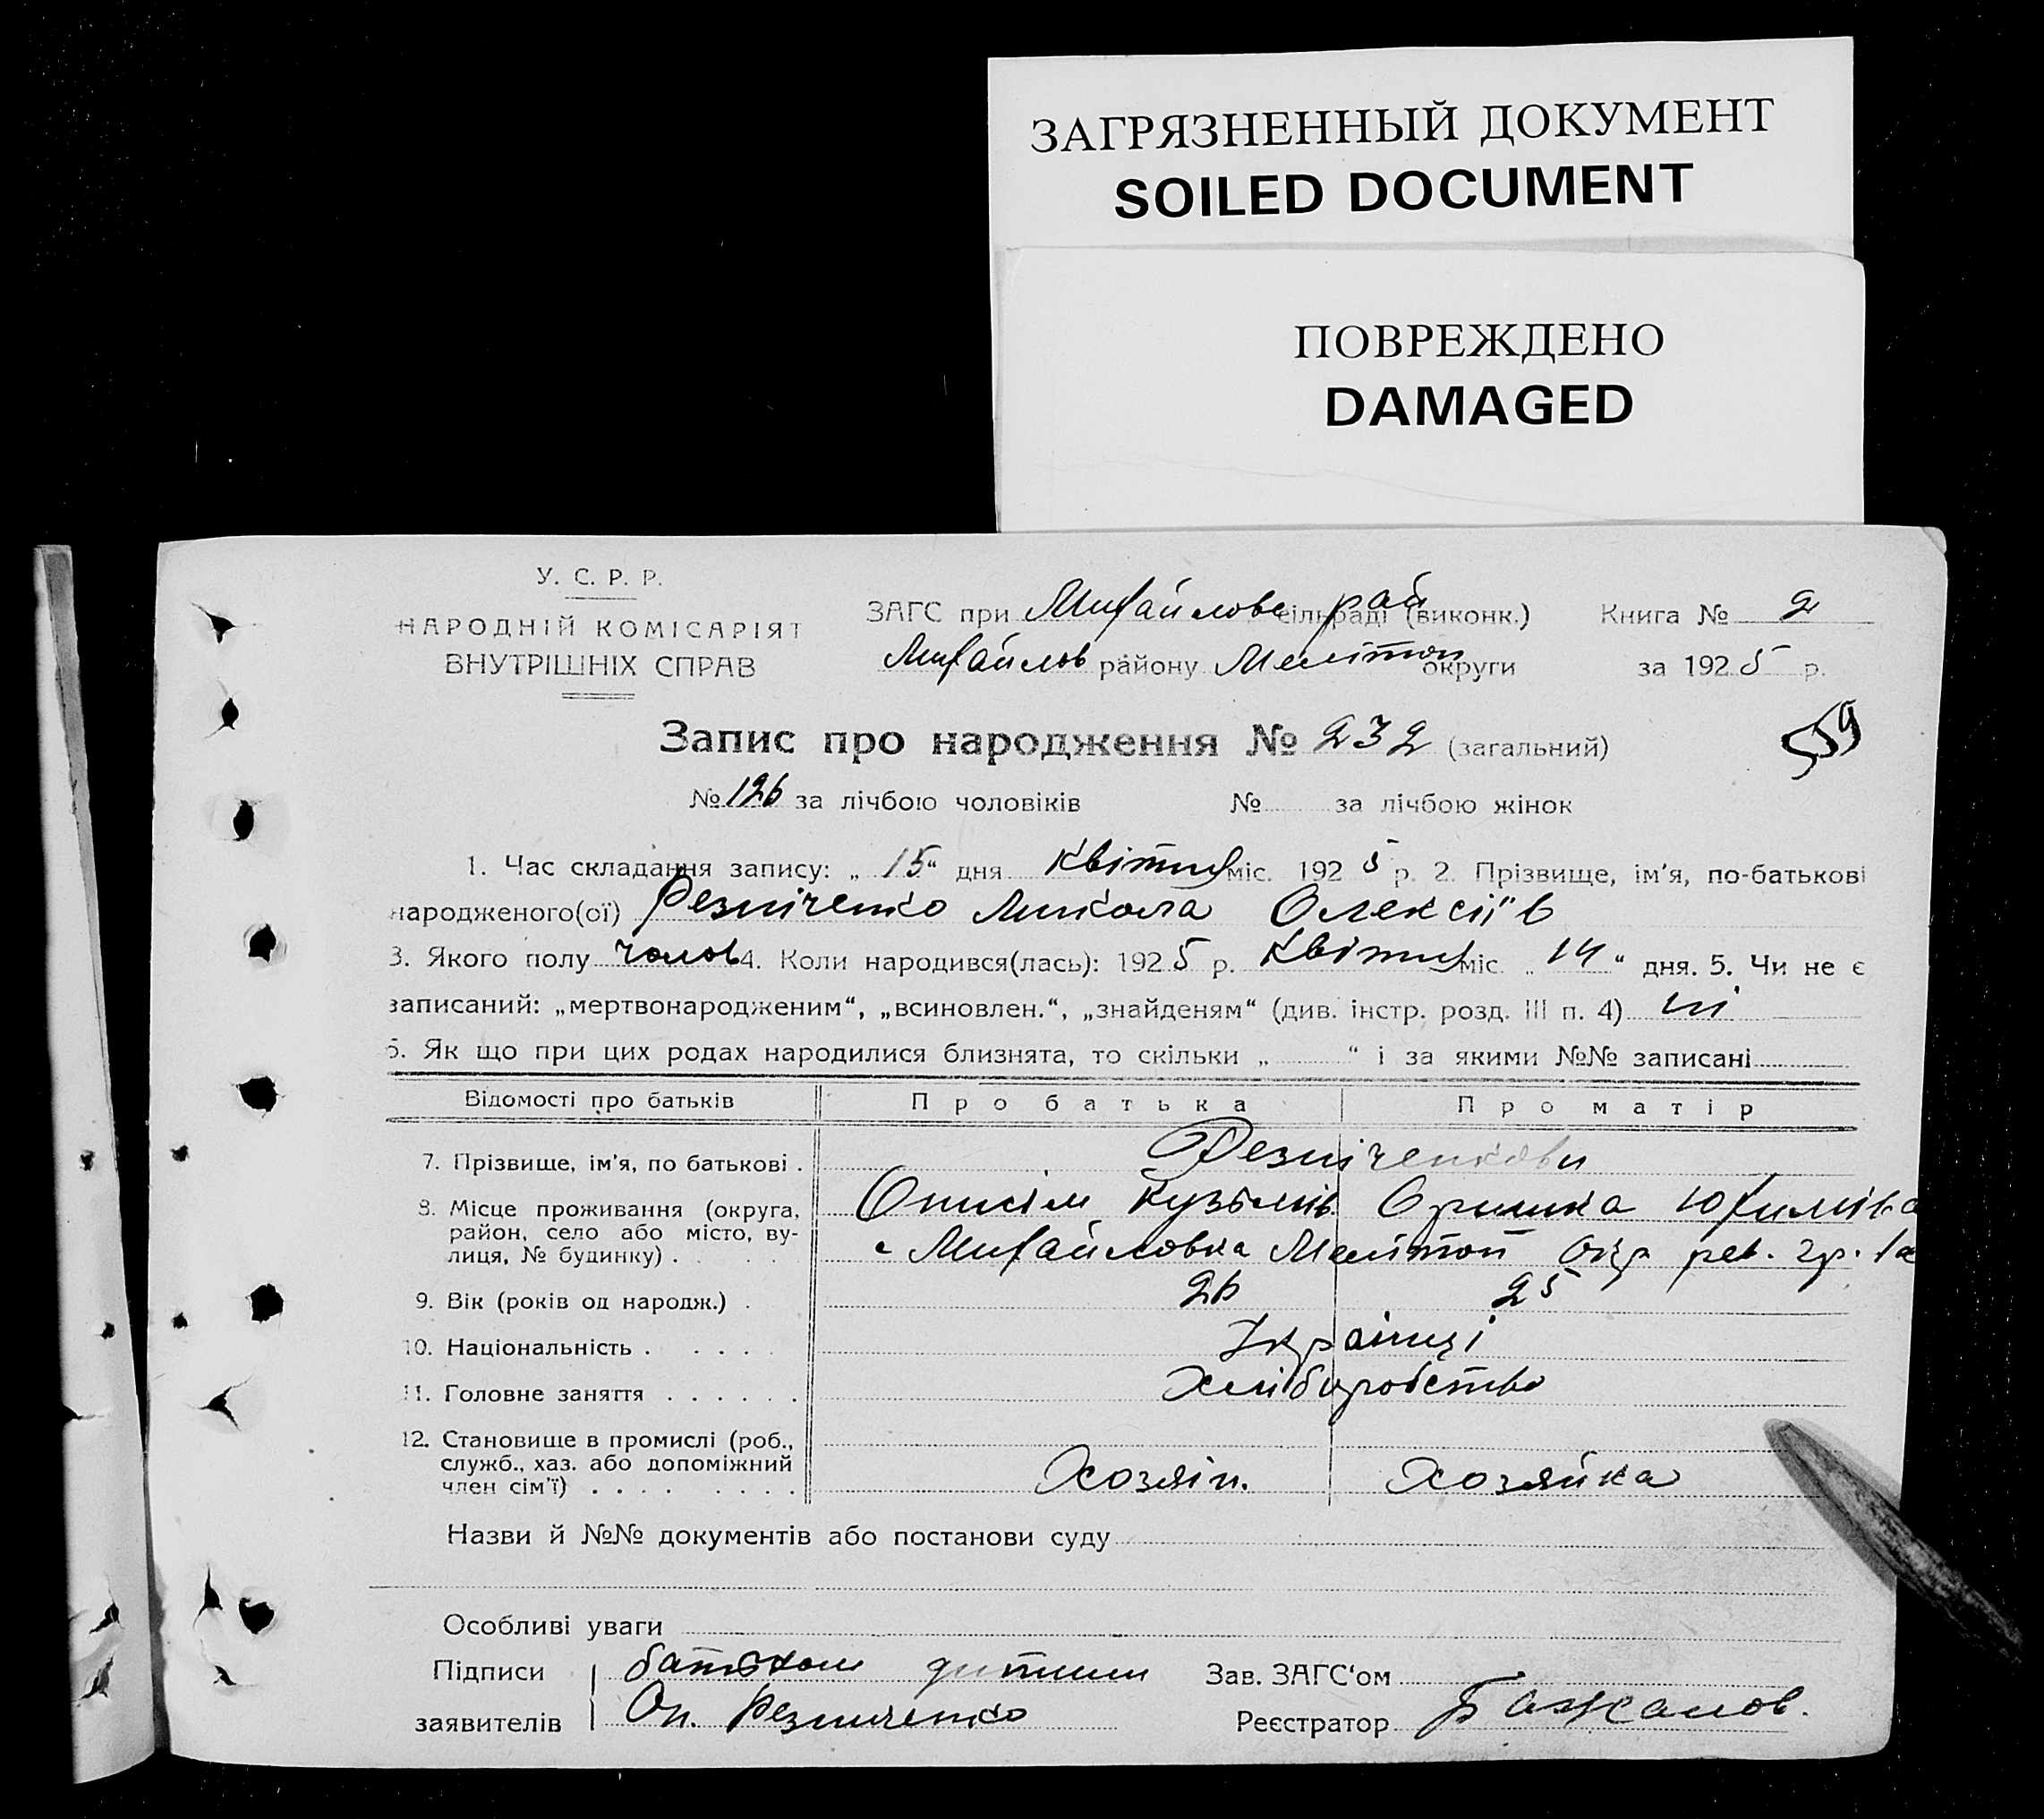 ЗАГРЯЗНЕННЫЙ ДОКУМЕНТ
SOILED DOCUMENT
ПОВРЕЖДЕНО
DAMAGED
У. С. Р. Р.
НАРОДНІЙ КОМІСАРІЯТ
ВНУТРІШНІХ СПРАВ
ЗАГС при Михайлове сільраді рай (виконк.)
Михайлов району Мелітоп округи
Книга № 2
за 1925 р.
559
Запис про народження № 232 (загальний)
№ 126 за лічбою чоловіків № за лічбою жінок
1. Час складання запису: „ 15 “ дня Квітня міс. 1925 р. 2. Прізвище, ім'я, по-батькові
народженого(ої) Резніченко Микола Олексіїв
3. Якого полу чолов 4. Коли народився(лась): 1925 р. Квітня міс. „ 14 “ дня. 5. Чи не є
записаний: „мертвонародженим“, „всиновлен.“, „знайденям“ (див. інстр. розд. III п. 4) ні
6. Як що при цих родах народилися близнята, то скільки „ “ і за якими №№ записані
Відомості про батьків Про батька Про матір
7. Прізвище, ім'я, по батькові . Резніченкови
8. Місце проживання (округа, район, село або місто, вулиця, № будинку) .
Онисім Кузьмів Оришка Юхимівa
с Михайловка Мелітоп окр рев. гр.
9. Вік (років од народж.) . 26 25
10. Національність . . . . . Українці
11. Головне заняття . . . . . . Хліборобство
12. Становище в промислі (роб.,
служб., хаз. або допоміжний
член сім'ї) . . . . . . . . Хозяін. Хозяйка
Назви й №№ документів або постанови суду
Особливі уваги
Підписи батьком дитини Зав. ЗАГС'ом
заявителів Он. Резниченко Реєстратор Бажанов.